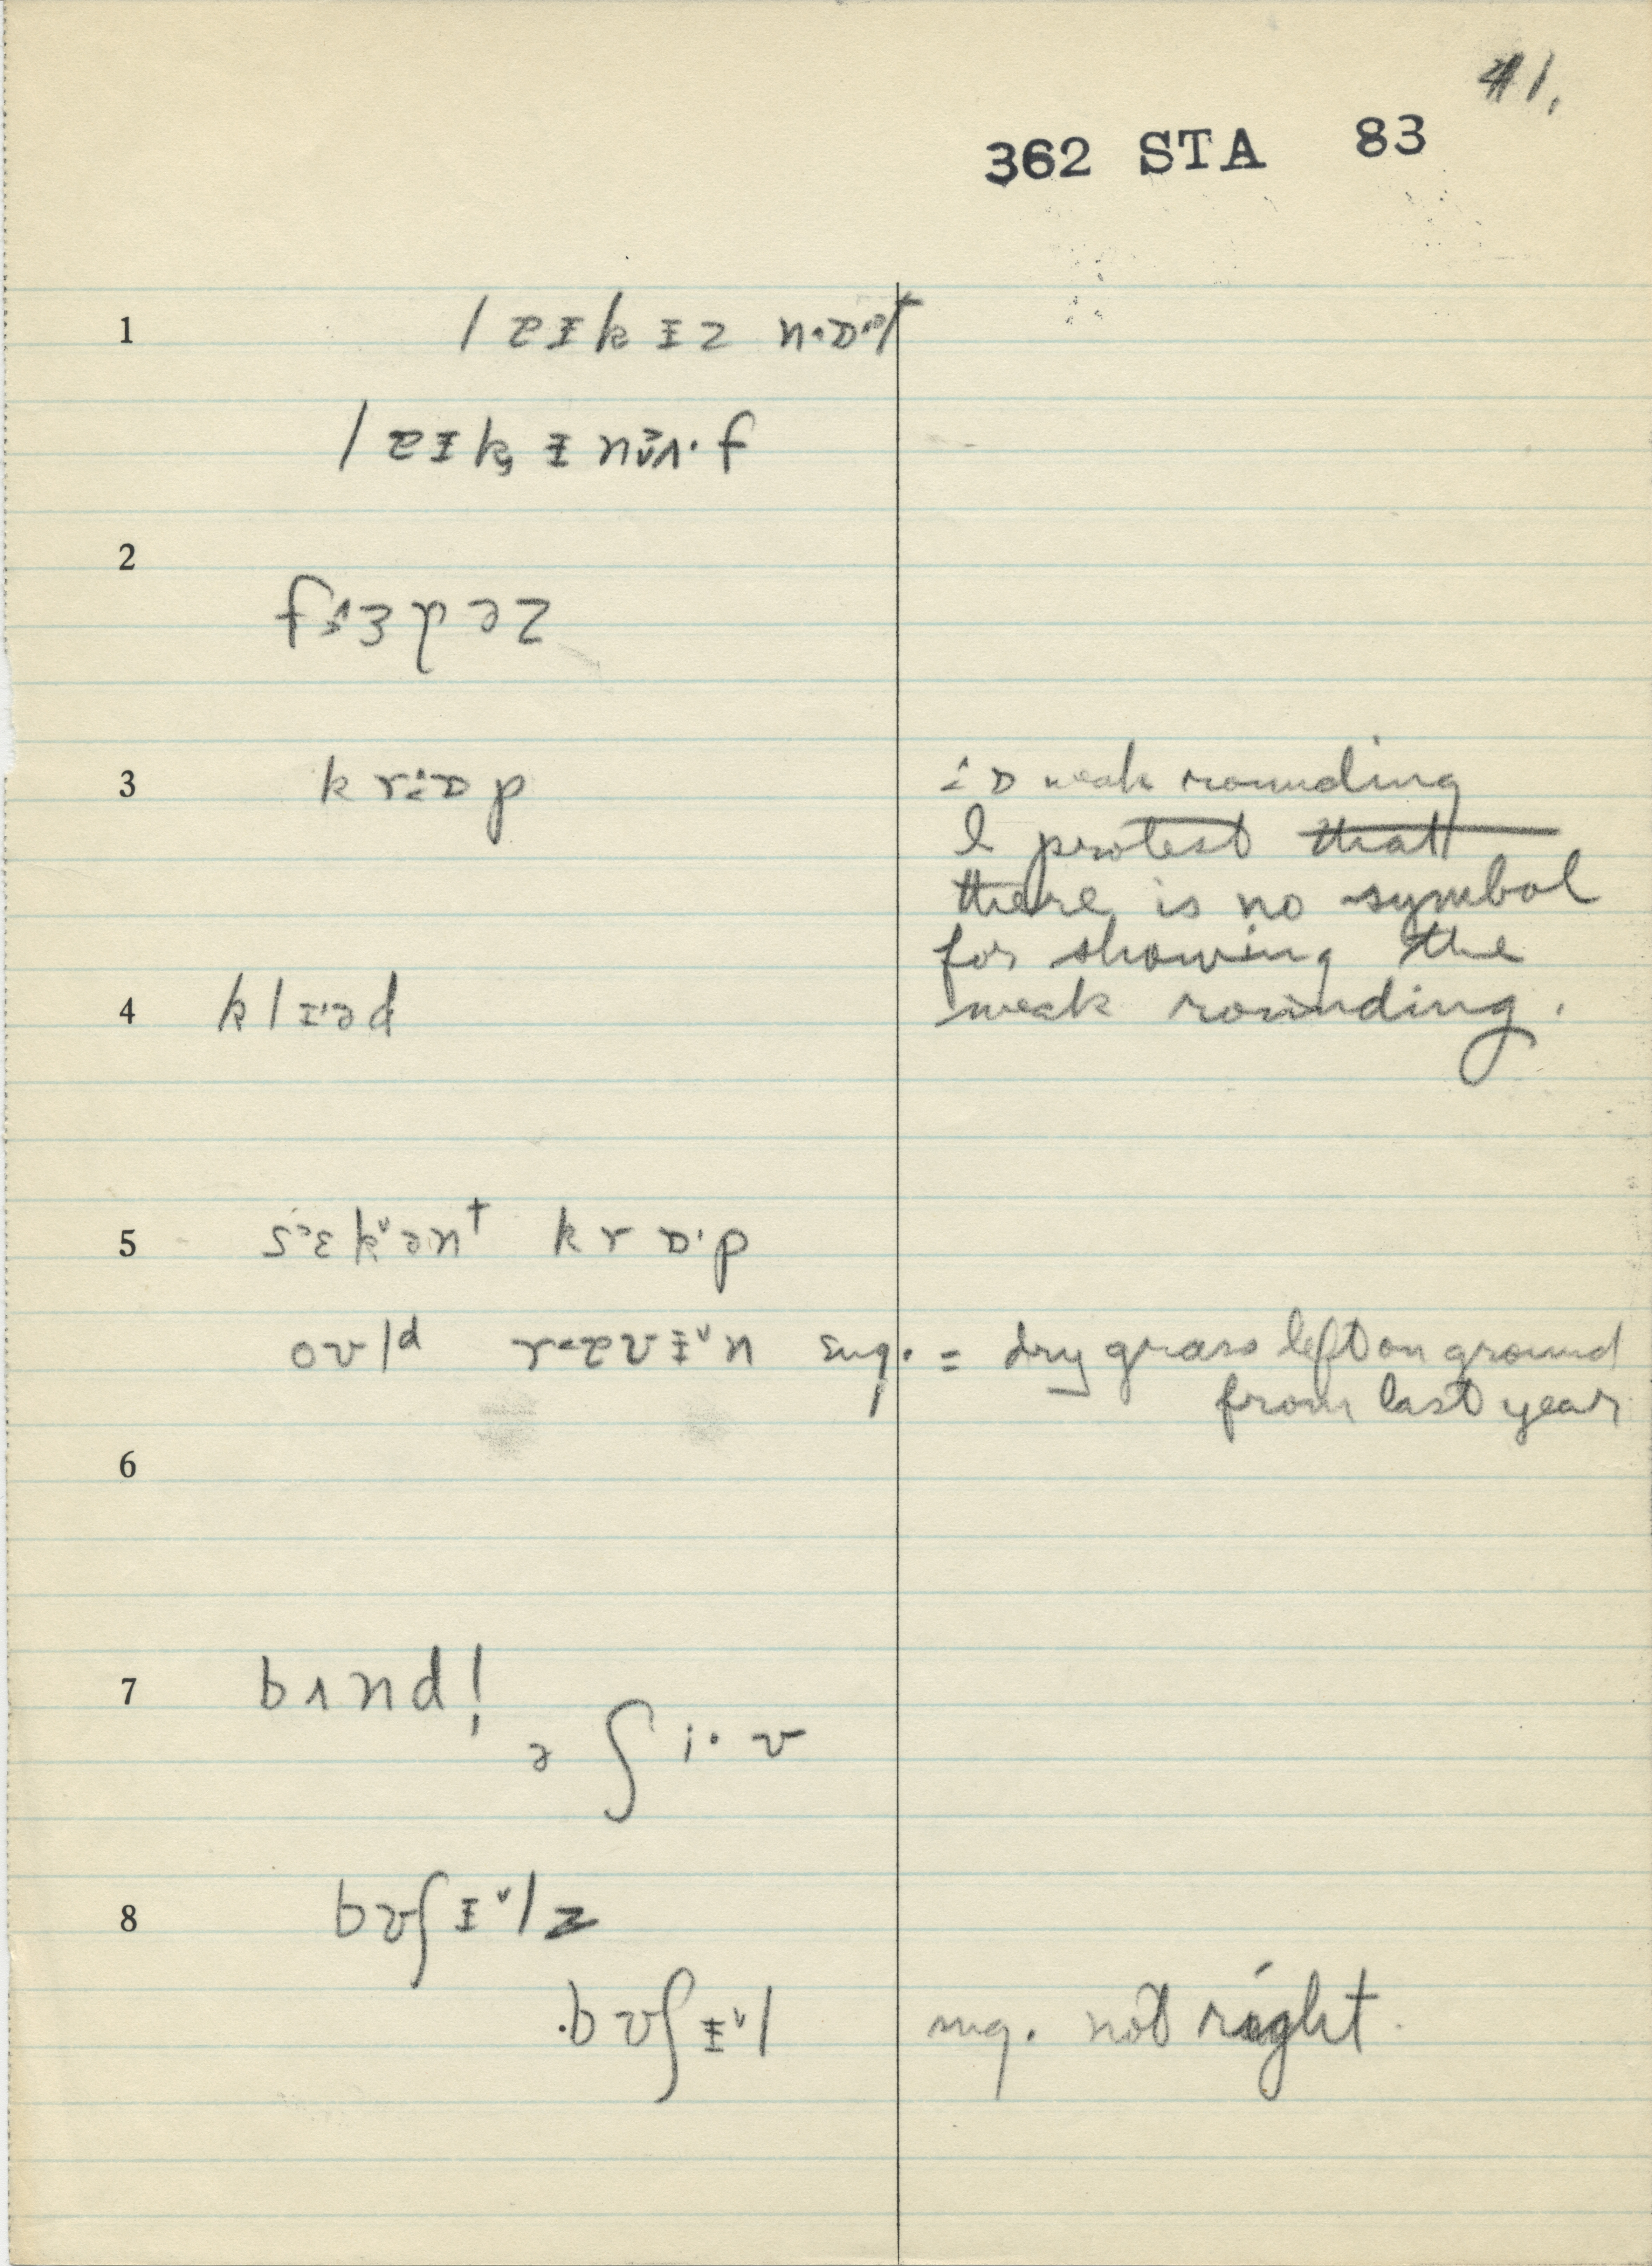 41.
362 STA 83
1 lɐɪkɪz nˑɒˑt
lɐɪk ɪnʌˑf
2
fɜpəz
3 krɒp ɒ weak rounding
I protest that
there is no symbol
for showing the
4 klɪˑəd weak rounding.
5 sɛkˇənt krɒˑp
oʊld rɐʊɪˇn sug. = dry grass left on ground
from last year
6
7 bʌnd!
ə ʃiˑv
8 bʊʃɪˇlz
bʊʃɪˇl sug. not right.